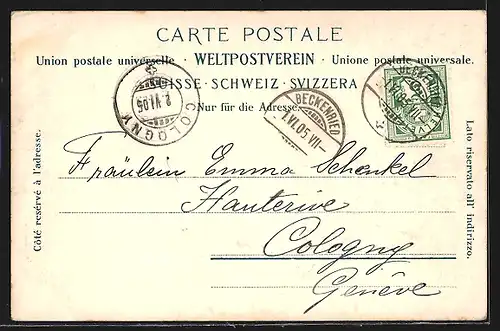 CARTE POSTALE
Union postale universelle · WELTPOSTVEREIN · Unione postale universale.
SUISSE · SCHWEIZ · SVIZZERA
Nur für die Adresse.
COLOGNY
2.VI.05
BECKENRIED
1.VI.05.VII-
BECKENRIED
Côté resérvé à l'adresse.
Lato riservato all' indirizzo.
Fräulein Emma Schenkel
Hauterive
Cologny
Genève